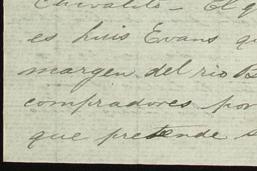 Chivalito - El q
es Luis Evans qu
margen del rio B
compradores por
que pretende s